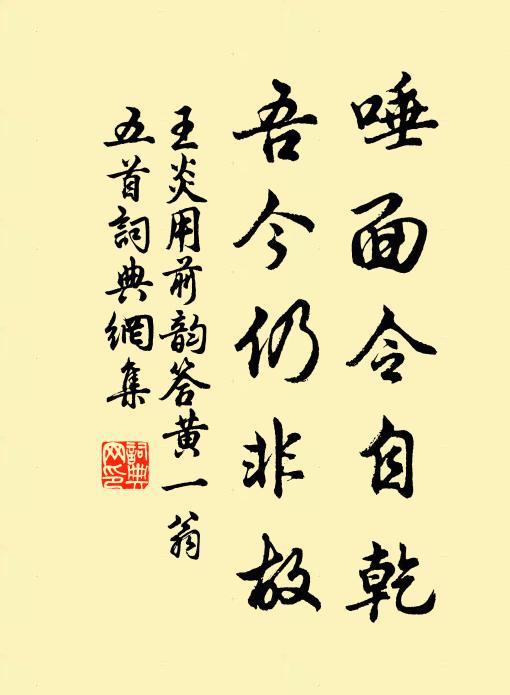 唾面令自乾
吾今仍非故
王炎用前韵答黄一翁
五首詞典網集
詞典
网印